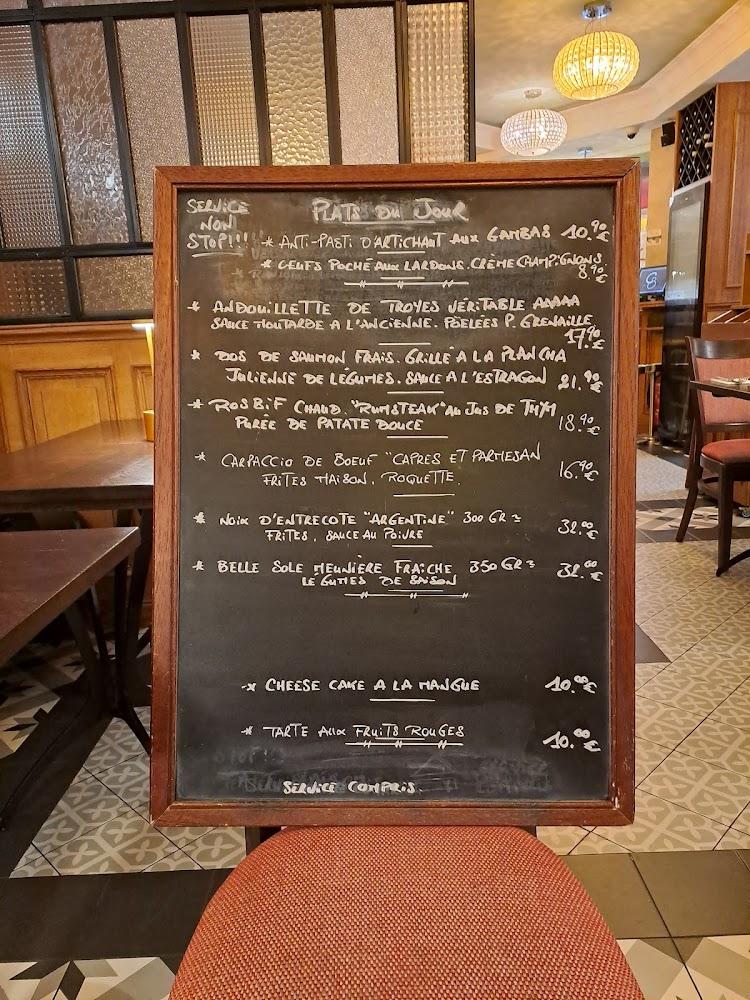 SERVICE
NON
STOP!!!
PLATS DU JOUR
* ANTI-PASTI D'ARTICHAUT AUX GAMBAS 10.90 €
* OEUFS POCHÉ AUX LARDONS. CRÈME CHAMPIGNONS
8.90 €
* ANDOUILLETTE DE TROYES VÉRITABLE AAAAA
SAUCE MOUTARDE A L'ANCIENNE. POELÉES P. GRENAILLE
17.90 €
* DOS DE SAUMON FRAIS. GRILLÉ A LA PLANCHA
JULIENNE DE LÉGUMES. SAUCE A L'ESTRAGON 21.90 €
* ROSBIF CHAUD. "RUMSTEAK" AU JUS DE THYM
PURÉE DE PATATE DOUCE 18.90 €
* CARPACCIO DE BOEUF "CAPRES ET PARMESAN
FRITES MAISON. ROQUETTE. 16.90 €
* NOIX D'ENTRECOTE "ARGENTINE" 300 GR ≃
FRITES. SAUCE AU POIVRE 32.00 €
* BELLE SOLE MEUNIÈRE FRAÎCHE 350 GR ≃ 32.00 €
LEGUMES DE SAISON
* CHEESE CAKE A LA MANGUE 10.00 €
* TARTE AUX FRUITS ROUGES 10.00 €
SERVICE COMPRIS.